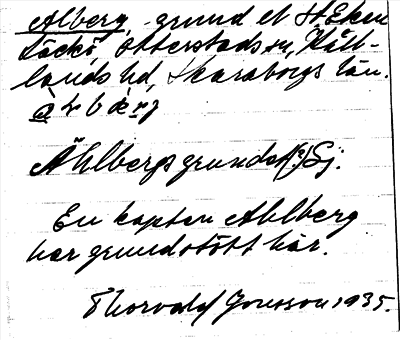 Alberg, grund el St Eken
Läckö, Otterstads sn, Kåll-
lands hd, Skaraborgs län.
Ahlbergs grundet (?) Sj.
En kapten Ahlberg
har grundstött här.
Thorvald Jonsson 1935.